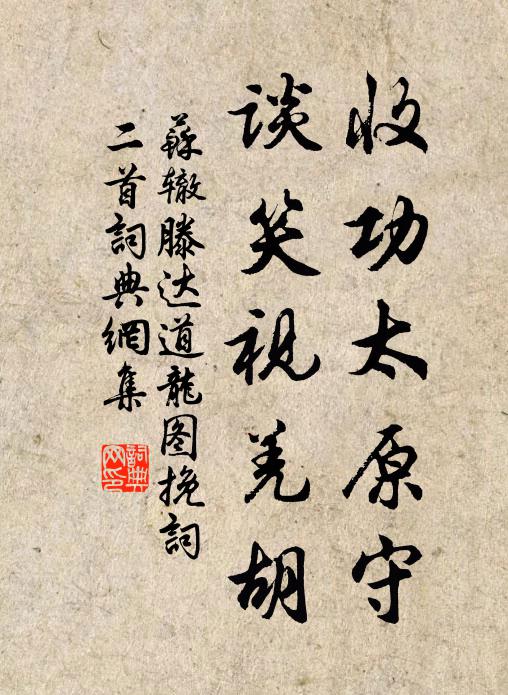 收功太原守
谈笑视羌胡
蘇辙滕达道龍图挽詞
二首詞典網集
詞典
网印